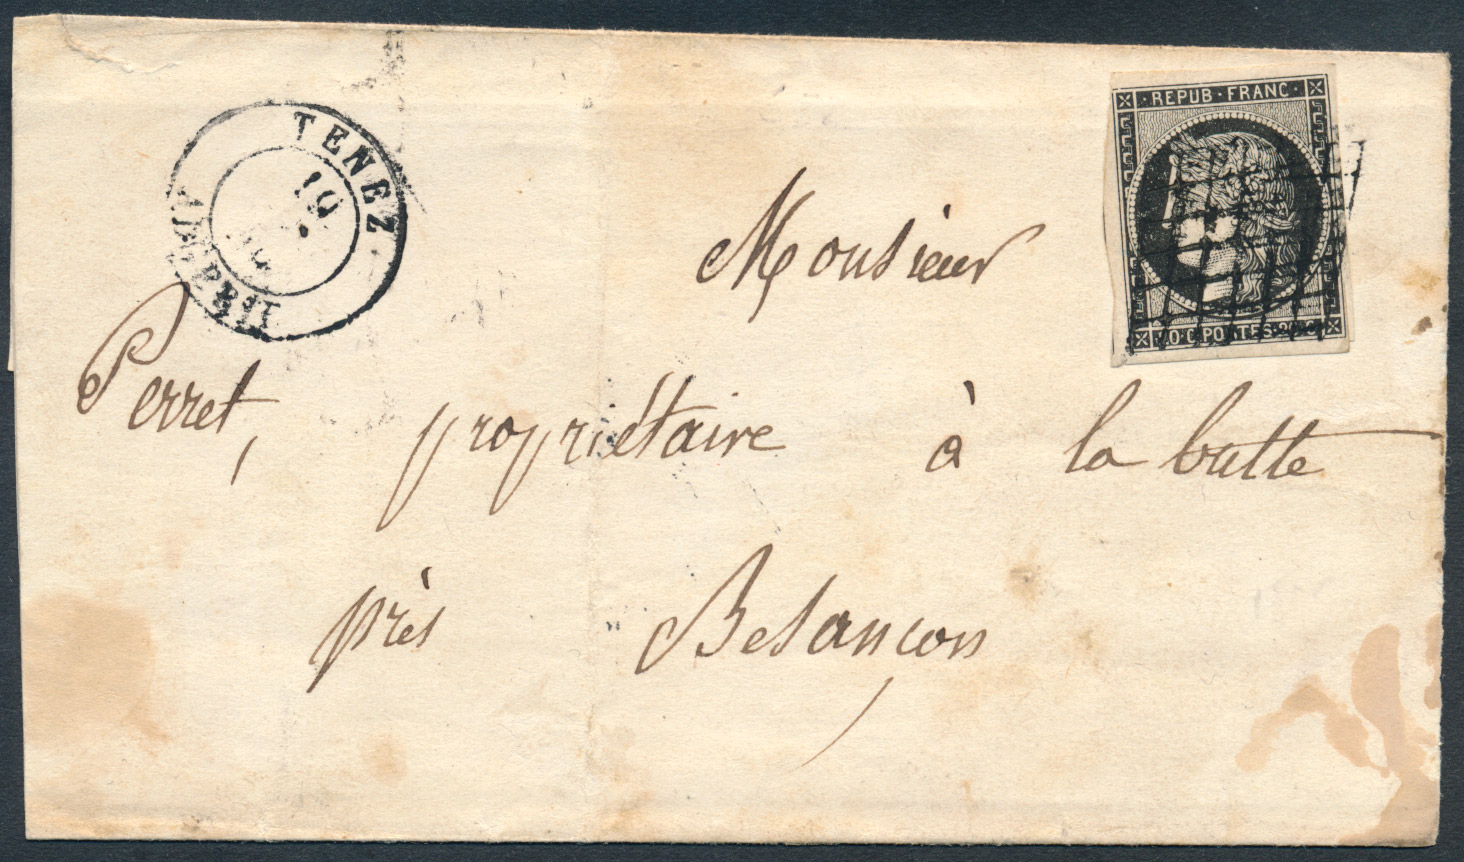 TENEZ
19
REPUB · FRANC ·
20 · C · POSTES · 20 · C
Monsieur
Perret, propriétaire à la butte
près Besançon